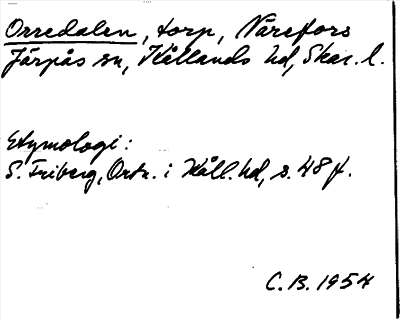 Orredalen, torp, Närefors
Järpås sn, Kållands hd, Skar. l.
Etymologi:
S. Friberg, Ortn. i Kåll. hd, s. 48 f.
C. B. 1954